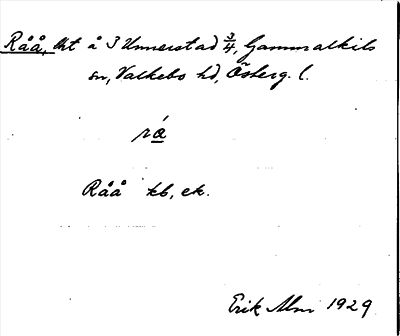 Råå, lht å 3 Unnerstad 3/4, Gammalkils
sn, Valkebo hd, Österg. l.
rá
Råå kb, ek.
Erik Alm 1929